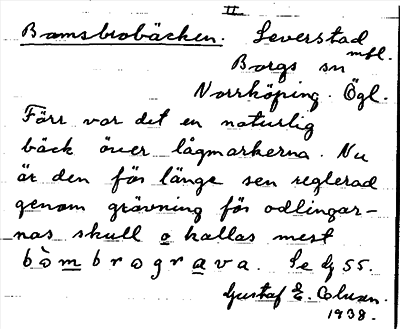 II
Bomsbrobäcken. Leverstad
mfl.
Borgs sn
Norrköping. Ögl.
Förr var det en naturlig
bäck över lågmarkerna. Nu
är den för länge sen reglerad
genom grävning för odlingar-
nas skull o kallas mest
bòmbrograva. Se dj 55.
Gustaf E.
1938.